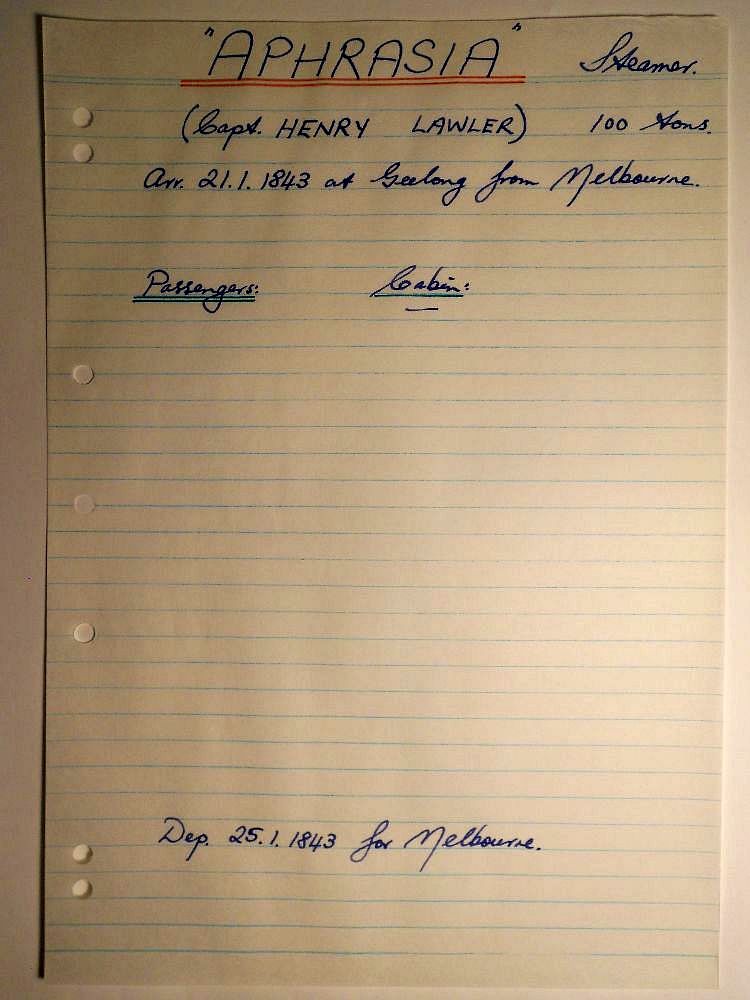 "APHRASIA" Steamer.
(Capt. HENRY LAWLER) 100 tons.
Arr. 21.1.1843 at Geelong from Melbourne.
Passengers: Cabin:
—
Dep. 25.1.1843 for Melbourne.